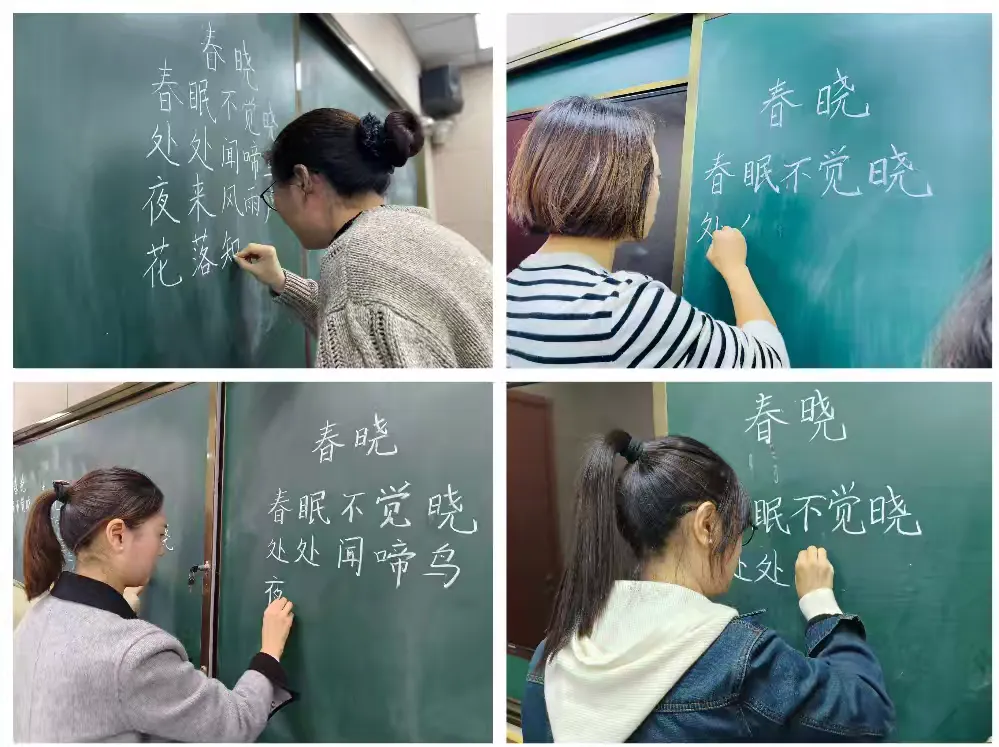 春晓
春眠不觉晓
处处闻啼
夜来风雨
花落知
春晓
春眠不觉晓
处
春晓
春眠不觉晓
处处闻啼鸟
夜
春晓
眠不觉晓
处